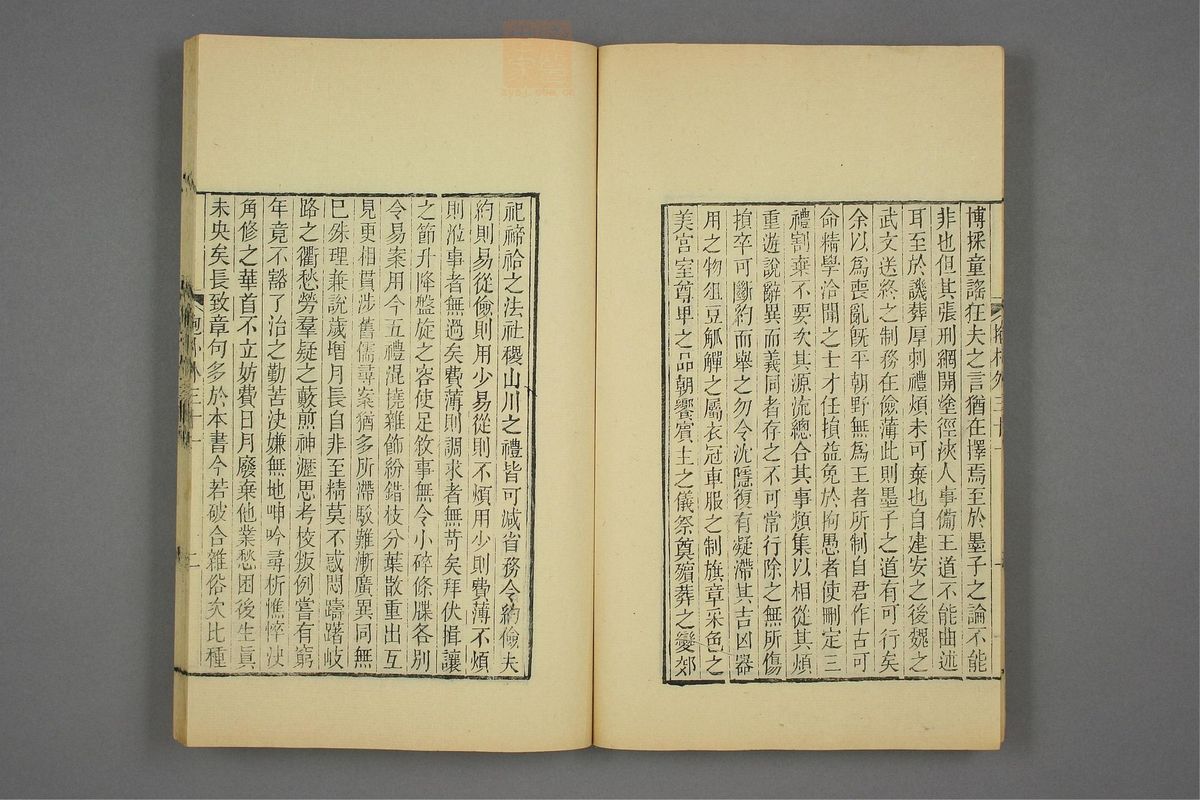 博採童謠狂夫之言猶在擇焉至於墨子之論不能
非也但其張刑網開塗徑浹人事備王道不能曲述
耳至於譏葬厚刺禮煩未可棄也自建安之後魏之
武文送終之制務在儉薄此則墨子之道有可行矣
余以為喪亂既平朝野無為王者所制自君作古可
命精學洽聞之士才任損益免於拘愚者使刪定三
禮割棄不要次其源流總合其事類集以相從其煩
重遊說辭異而義同者存之不可常行除之無所傷
損卒可斷約而舉之勿令沈隱復有凝滯其吉凶器
用之物俎豆觚觶之屬衣冠車服之制旗章采色之
美宮室尊卑之品朝饗賓主之儀祭奠殯葬之變郊
抱朴外三十一
祀禘祫之法社稷山川之禮皆可減省務令約儉夫
約則易從儉則用少易從則不煩用少則費薄不煩
則涖事者無過矣費薄則調求者無苛矣拜伏揖讓
之節升降盤旋之容使足敘事無令小碎條牒各別
令易案用今五禮混撓雜飾紛錯枝分葉散重出互
見更相貫涉舊儒尋案猶多所滯駁難漸廣異同無
已殊理兼說歲增月長自非至精莫不惑悶躊躇岐
路之衢愁勞羣疑之藪煎神瀝思考校叛例嘗有窮
年竟不豁了治之勤苦決嫌無地呻吟尋析憔悴決
角修之華首不立妨費日月廢棄他業愁困後生真
未央矣長致章句多於本書今若破合雜俗次比種
抱朴外三十一
二